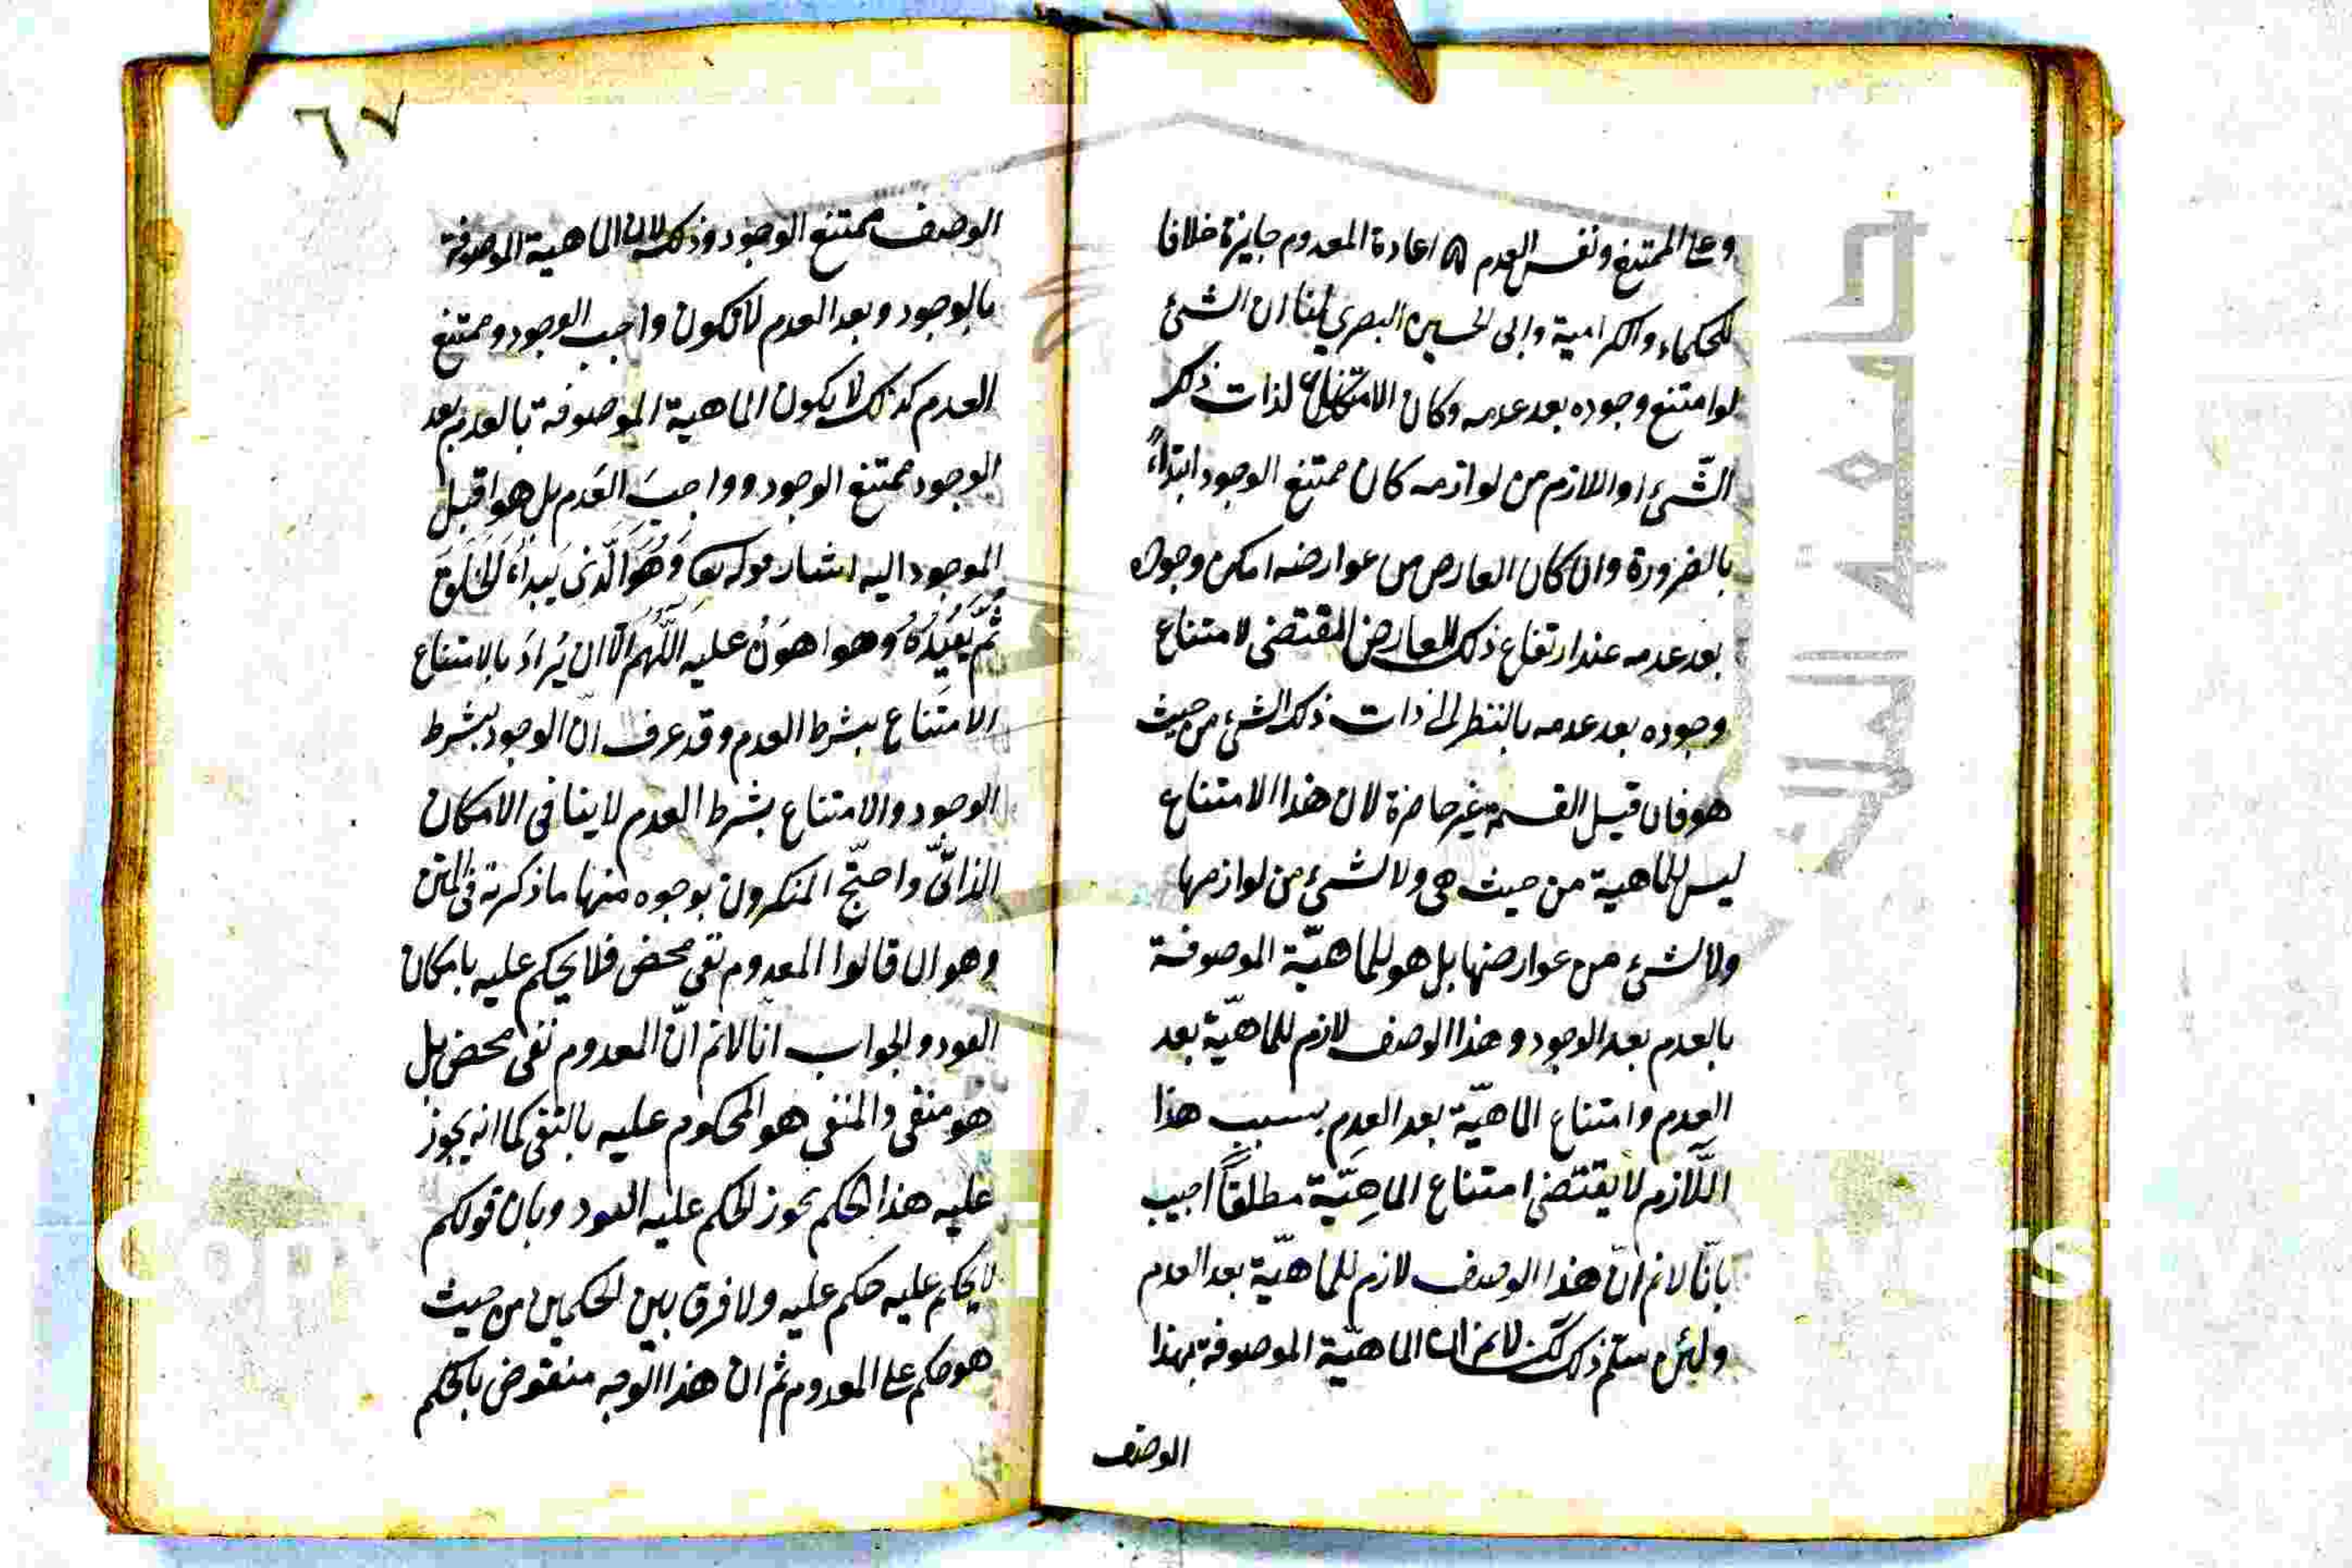 وعلى الممتنع ونفس العدم ه اعادة المعدوم جايزة خلافا
للحكماء والكرامية وابى الحسين البصري لنا ان الشئ
لوامتنع وجوده بعد عدمه وكان الامتناع لذات ذلك
الشّئ او اللازم من لوازمه كان ممتنع الوجود ابتداءً
بالضرورة وان كان العارض من عوارضه امكن وجوده
بعد عدمه عند ارتفاع ذلك العارض المقتضى لامتناع
وجوده بعد عدمه بالنظر الى ذات ذلك الشئ من حيث
هو فان قيل القسمة غير حاضرة لان هذا الامتناع
ليس للماهية من حيث هى ولا لشئ من لوازمها
ولا لشئ من عوارضها بل هو للماهيّة الموصوفة
بالعدم بعد الوجود وهذا الوصف لازم للماهيّة بعد
العدم وامتناع الماهيّة بعد العدم بسبب هذا
اللّازم لا يقتضى امتناع الماهيّة مطلقاً اجيب
بانّا لانم انّ هذا الوصف لازم للماهيّة بعد العدم
ولئن سلّم ذلك لكن لانم ان الماهيّة الموصوفة بهذا
الوصف
٦٧
الوصف ممتنع الوجود وذلك لان الماهية الموصوفة
بالوجود وبعد العدم لا تكون واجب الوجود وممتنع
العدم كذلك لا يكون الماهية الموصوفة بالعدم بعد
الوجود ممتنع الوجود وواجبَ العَدم بل هو اقبل
الموجود اليه اشار قوله تعا وَهُوَ الَّذِى يَبْدَاءُ الْخَلْقَ
ثُمَّ يُعِيدُهُ وهو اهوَنُ عليه اللّهُمّ الّا ان يُرادَ بالامتناع
الامتناع بشرط العدم وقد عرف انّ الوجود بشرط
الوجود والامتناع بشرط العدم لاينافى الامكان
الذاتىّ واحتجّ المنكرون بوجوه منها ما ذكرته فى المتن
وهو ان قالوا المعدوم نفى محض فلا يحكم عليه بامكان
العود والجواب انّا لانم انّ المعدوم نفى محض بل
هو منفى والمنفى هو المحكوم عليه بالنفى كما انه يجوز
عليه هذا الحكم يجوز الحكم عليه العود وبان قولكم
لا يحكم عليه حكم عليه ولا فرق بين الحكمين من حيث
هو حكم على المعدوم ثم ان هذا الوجه منقوض بالحكم